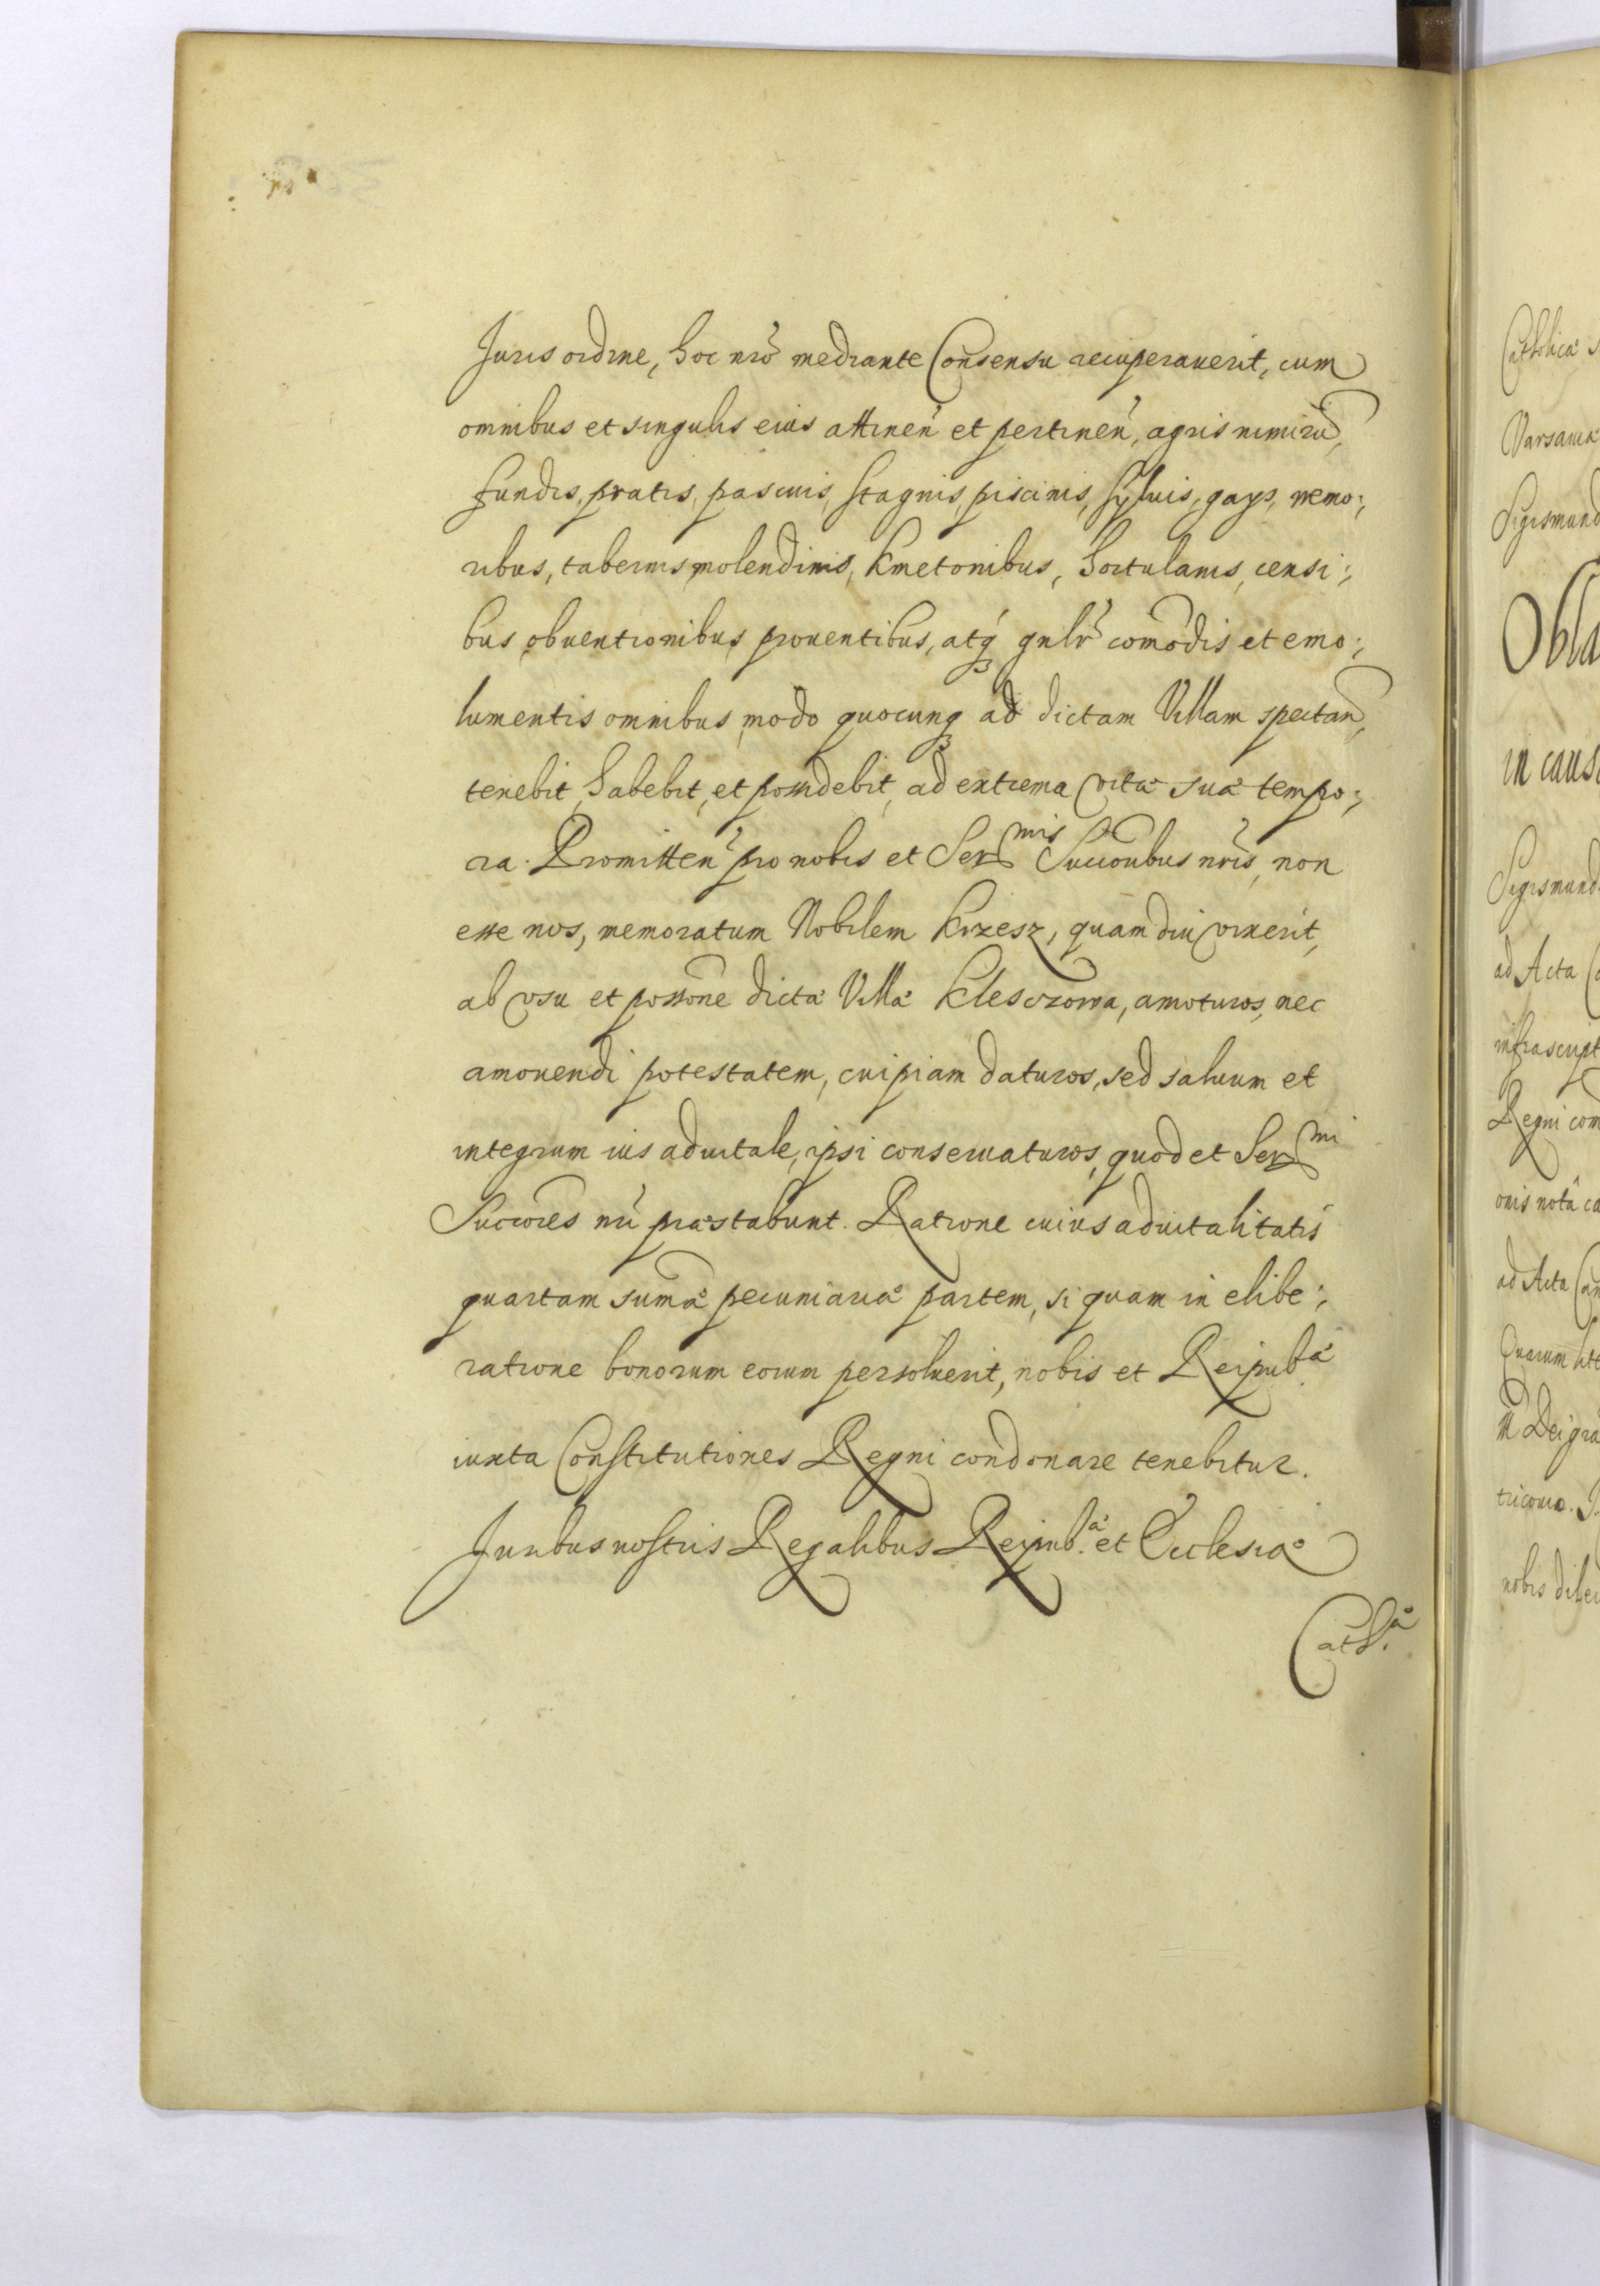 Juris ordine, hoc nrõ mediante Consensu recuperauerit, cum
omnibus et singulis eius attinen̄ et pertinen̄, agris nimirũ,
fundis, pratis, pascuis, stagnis, piscinis, syluis, gays, nemo:,
ribus, tabernis, molendinis, Kmetonibus, hortulanis, censi:,
bus, obuentionibus, prouentibus, atq́ꝫ gnlr̃ com̃odis et emo:,
lumentis omnibus, modo quocunqꝫ ad dictam Villam spectan̄,
tenebit, habebit, et possidebit, ad extrema vitæ suæ tempo:,
ra. Promitten̄ pro nobis et Ser^mis Succoribus nr̃is, non
esse nos, memoratum Nobilem Krzesz, quam diu vixerit,
ab vsu et possõne dictæ Villæ Klesczowa, amoturos, nec
amouendi potestatem, cuipiam daturos, sed saluum et
integrum ius aduitale, ipsi conseruaturos, quod et Ser^mi
Succores nr̃i præstabunt. Ratione cuius aduitalitatis
quartam sum̃æ pecuniariæ partem, si quam in elibe:,
ratione bonorum eorum persoluerit, nobis et Reipub.^æ
iuxta Constitutiones Regni condonare tenebitur.
Juribus nostris Regalibus Reipub.^æ et Ecclesiæ
Cath.^æ
Catholicæ
Varsauiæ
Sigismund
Obla
in caus
Sigismund
ad Acta
infrascript
Regni com
onis notâ ca
ad Acta Can
Quarum litt
Dei gra
nobis dile